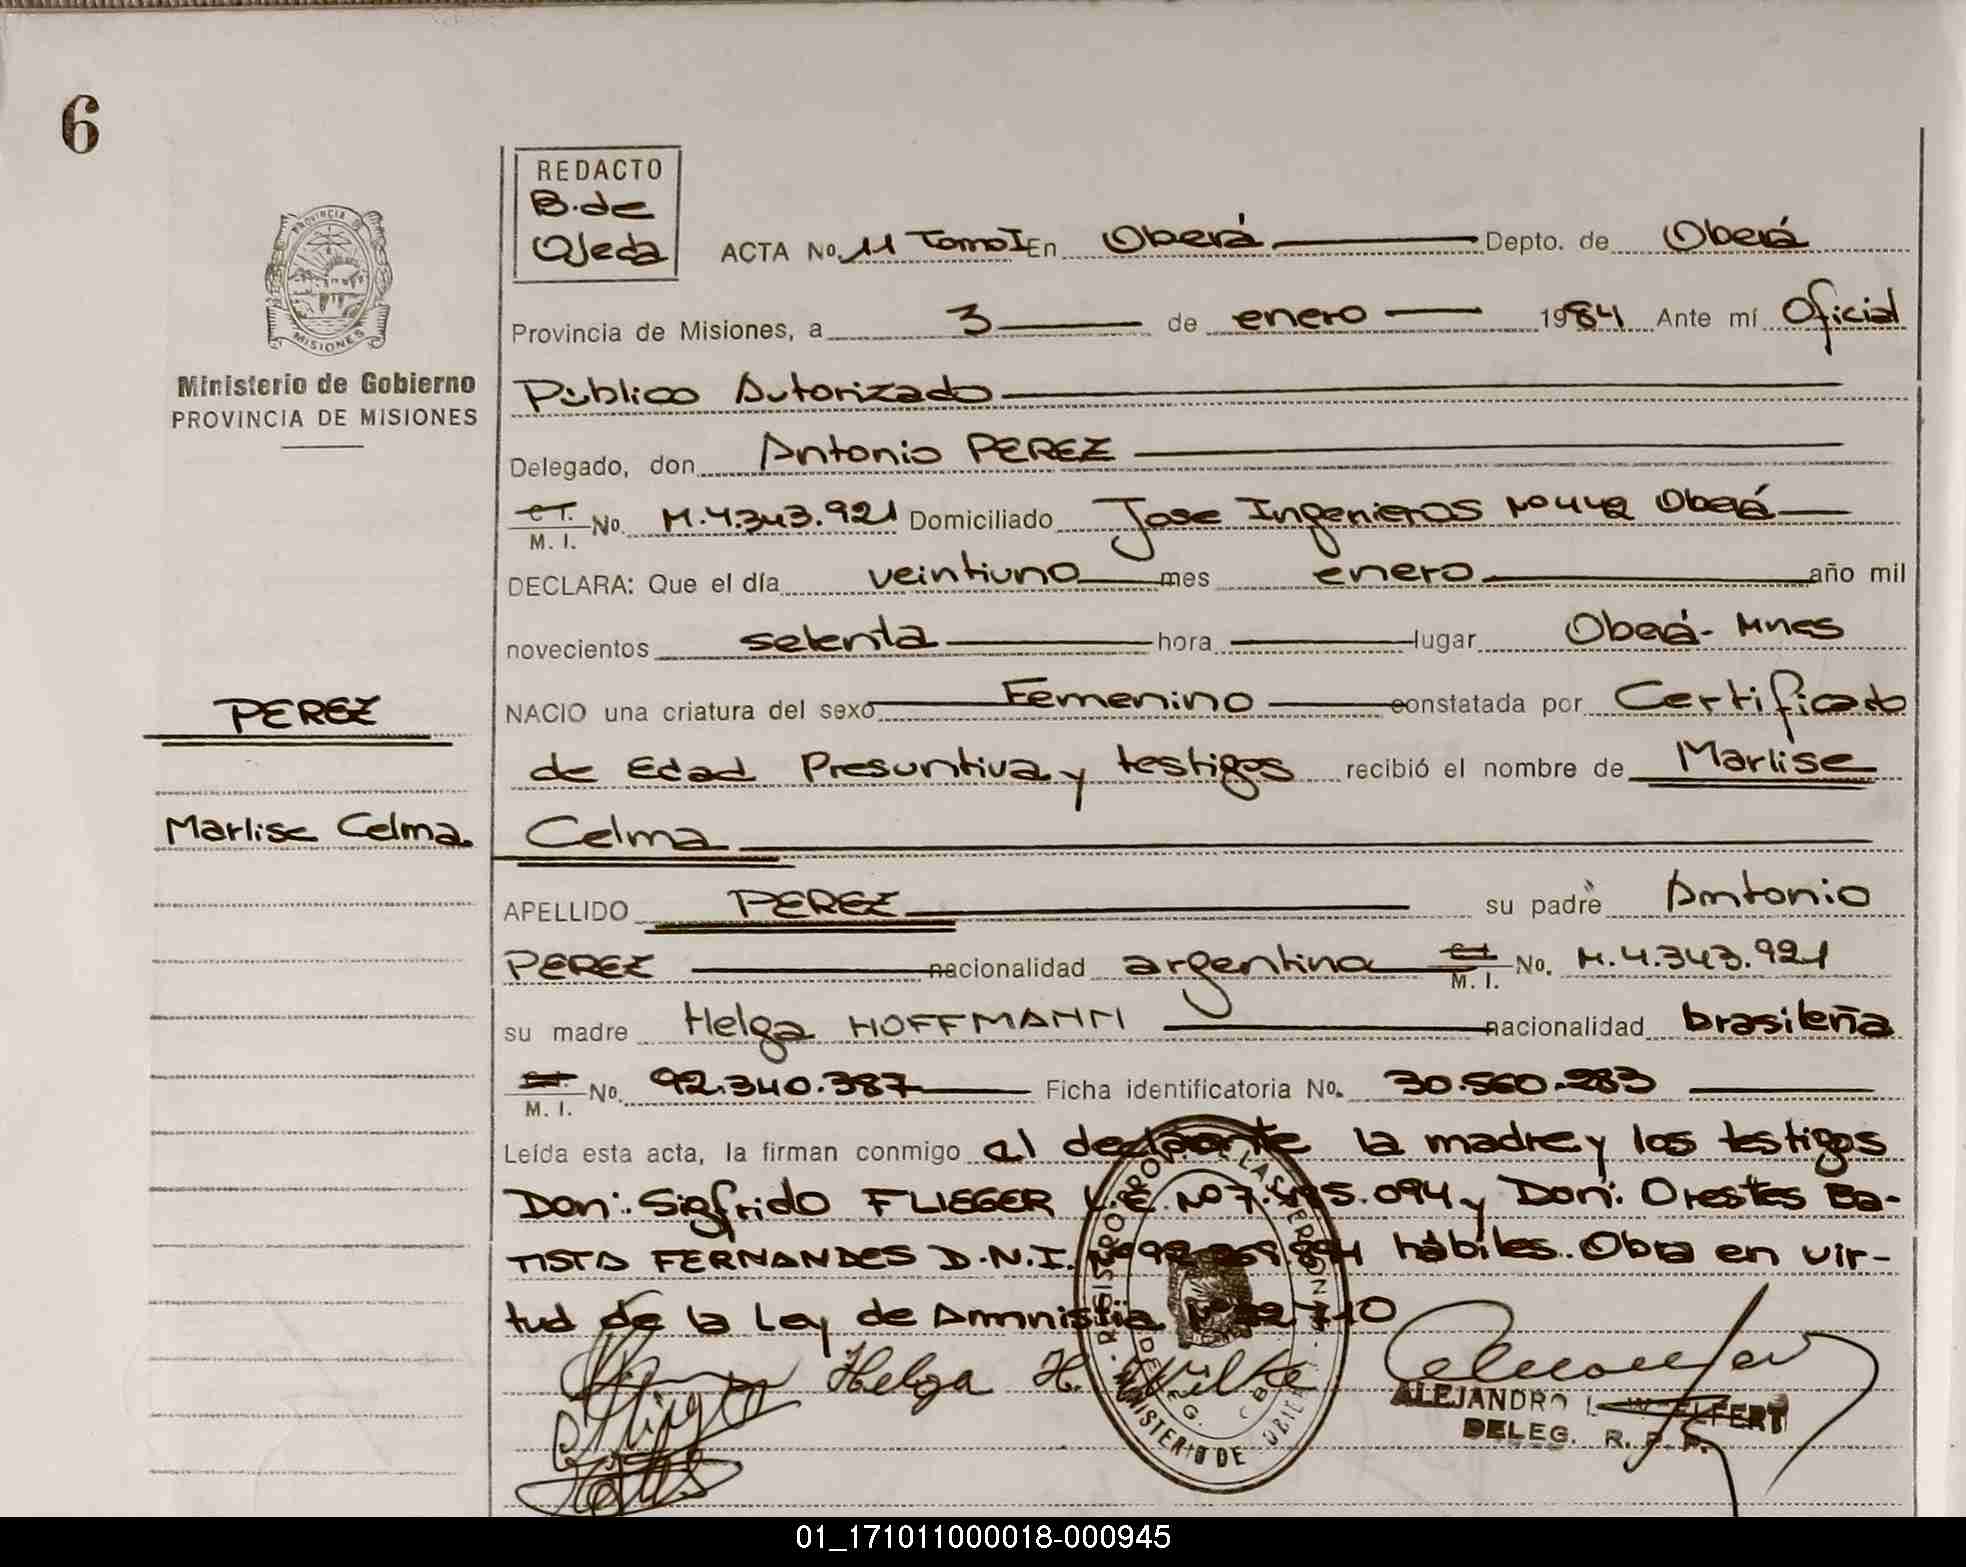 6
PROVINCIA DE
MISIONES
Ministerio de Gobierno
PROVINCIA DE MISIONES
REDACTO
B. de
Ojeda
ACTA No. 11 Tomo I En Oberá Depto. de Oberá
Provincia de Misiones, a 3 de enero 1984 Ante mí Oficial
Público Autorizado
Delegado, don Antonio PEREZ
C.I. M. I. No. M.4.343.921 Domiciliado Jose Ingenieros Nº 442 Oberá
DECLARA: Que el día veintiuno mes enero año mil
novecientos setenta hora lugar Oberá- Mnes
PEREZ
NACIO una criatura del sexo Femenino constatada por Certificado
de Edad Presuntiva y testigos recibió el nombre de Marlise
Marlise Celma
Celma
APELLIDO PEREZ su padre Antonio
PEREZ nacionalidad argentina C.I. M. I. No. M.4.343.921
su madre Helga HOFFMANN nacionalidad brasileña
C.I. M. I. No. 92.340.387 Ficha identificatoria No. 30.560.283
Leída esta acta, la firman conmigo el declarante la madre y los testigos
Don: Sigfrido FLIEGER L.E. Nº 7. .094 y Don: Orestes Ba-
TISTA FERNANDES D.N.I. Nº 92. hábiles. Obra en vir-
tud de la Ley de Amnistia Nº
Helga H. Wilke
ALEJANDRO L. WELFERT
DELEG. R. P. P.
MINISTERIO DE GOBIE
01_171011000018-000945